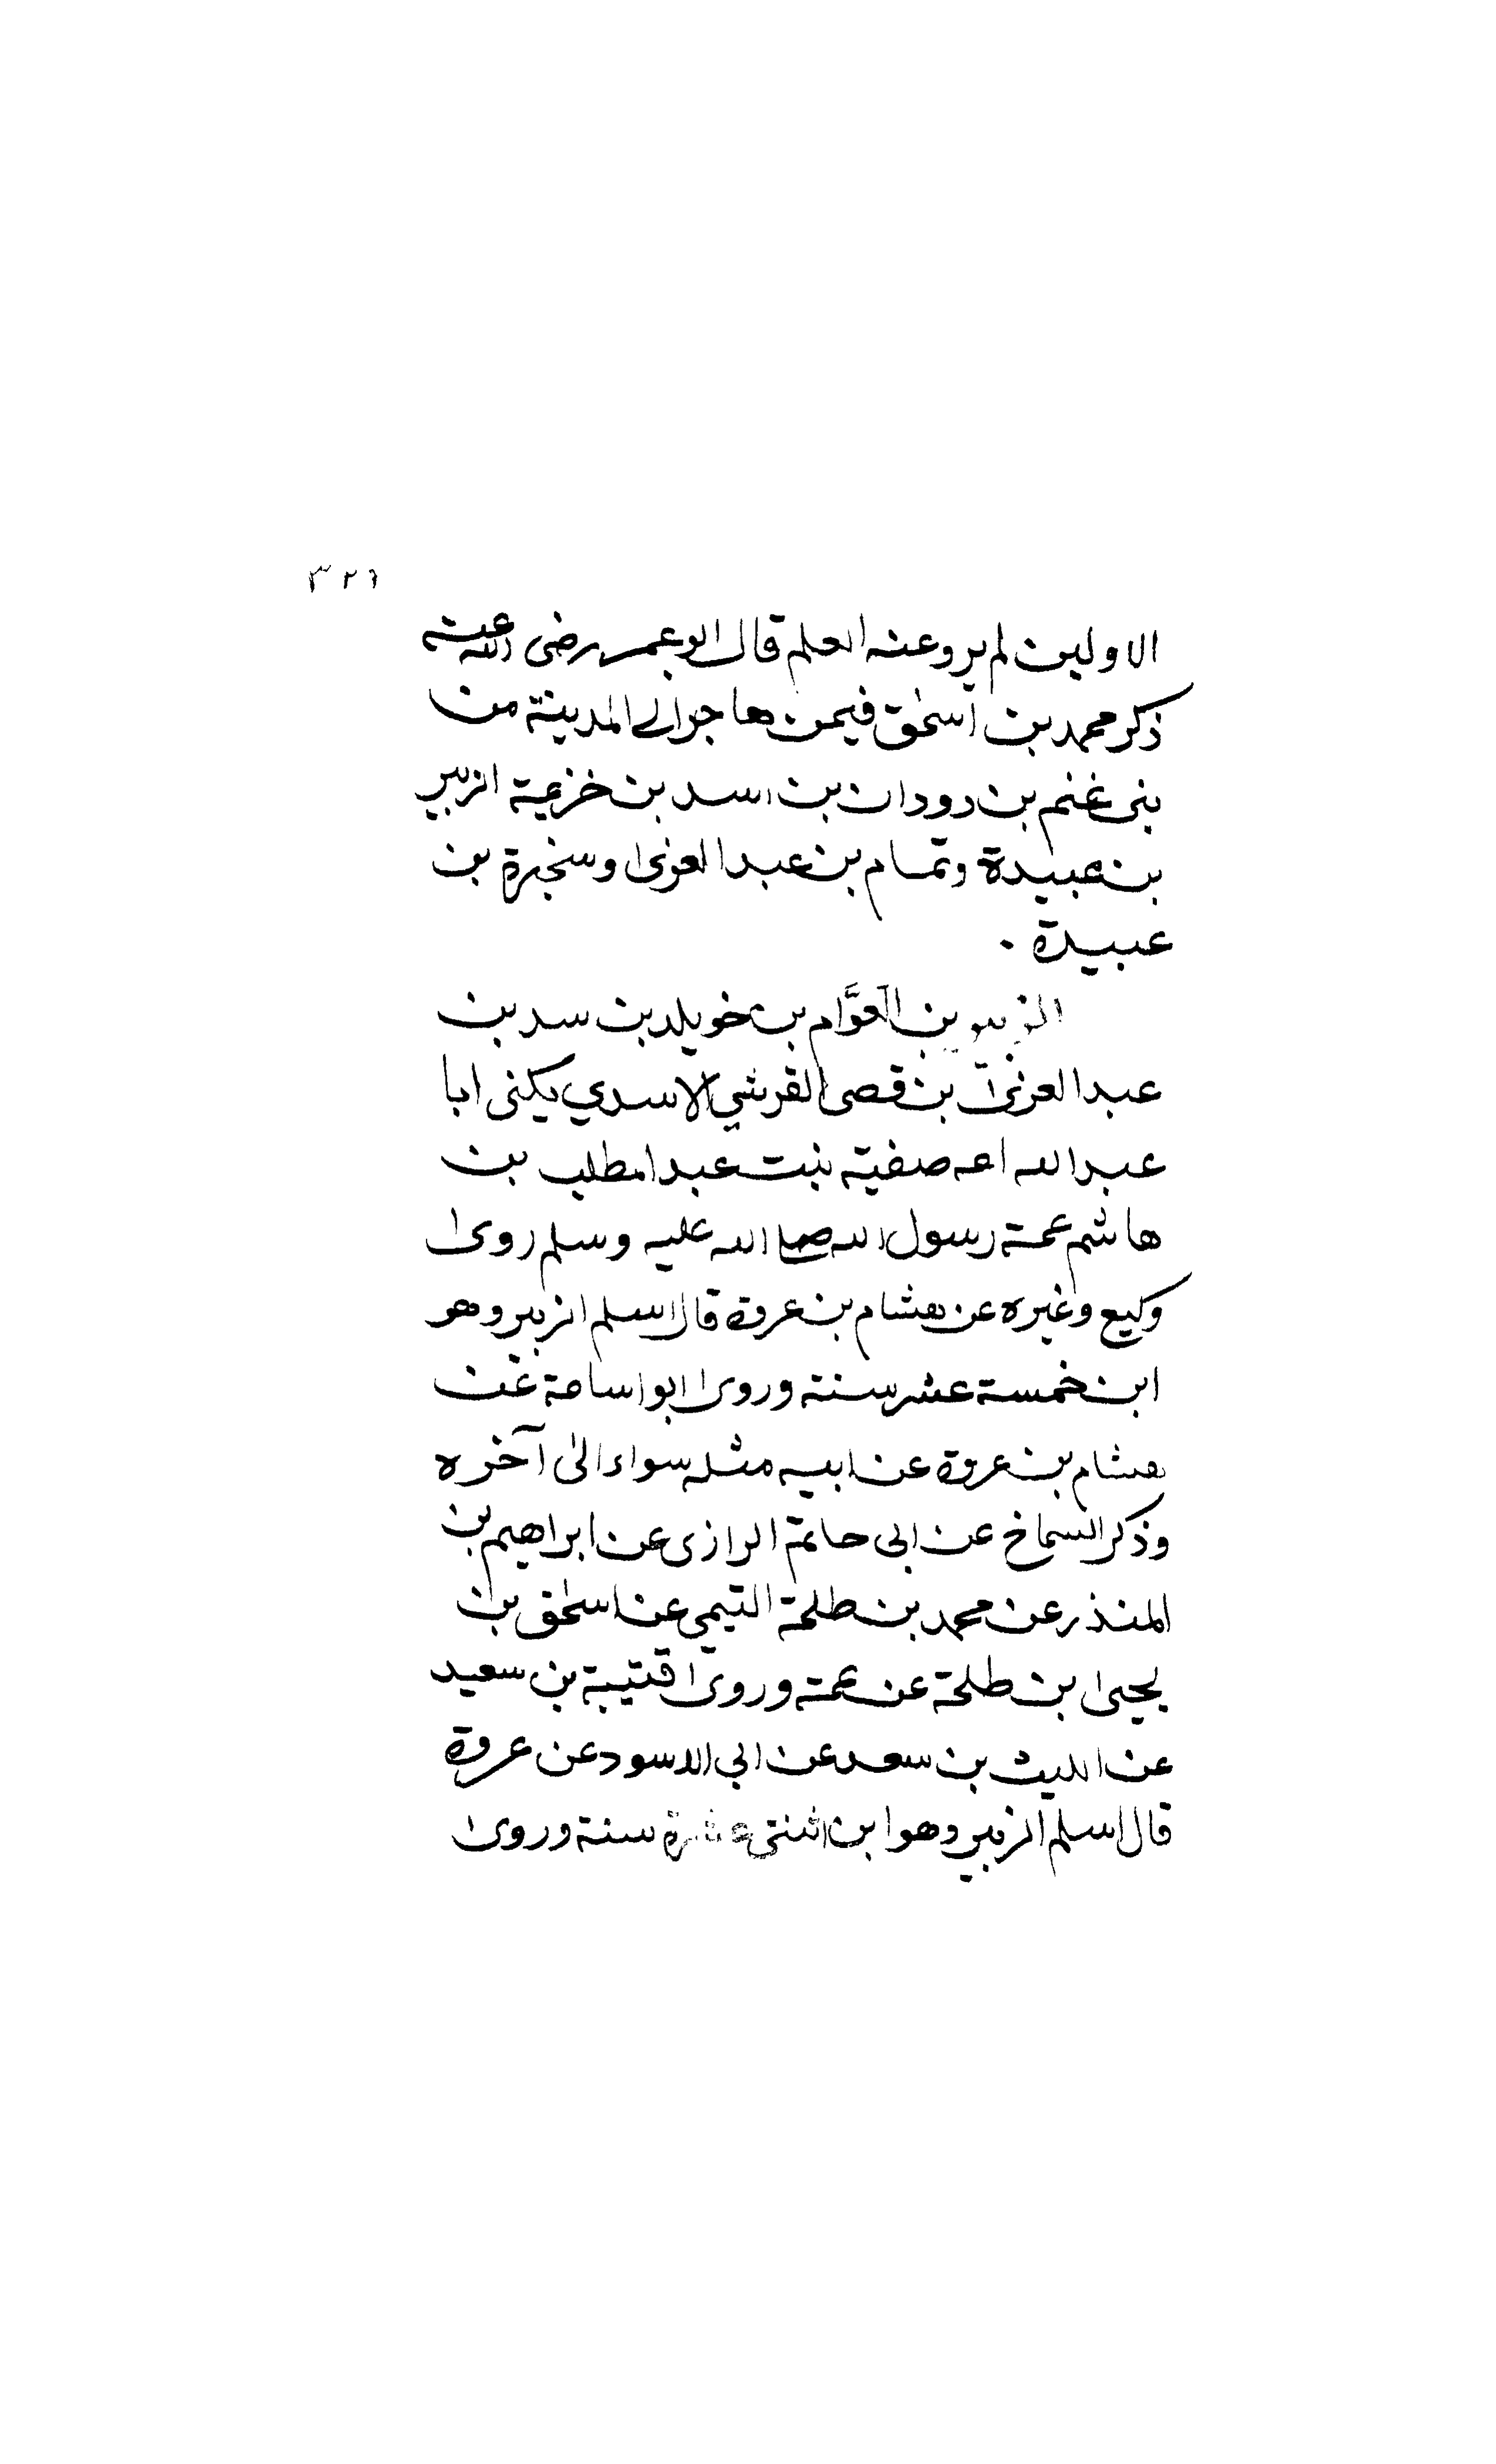 ٣٢٦
الاولين لم يرو عنه العلم قال ابو عمر رضى الله عنه
ذكر محمد بن اسحٰق فيمن هاجر الى المدينة من
بنى غنم بن دودان بن اسد بن خزيمة الزبير
بن عبيدة وتمام بن عبد العزى وسخبرة بن
عبيدة .
الزبير بن العوَّام بن خويلد بن سد بن
عبد العزىٰ بن قصى القرشي الاسدي يكنى ابا
عبد الله امه صفية بنت عبد امطلب بن
هاشم عمة رسول الله صلى الله عليه وسلم روىٰ
وكيع وغيره عن هشام بن عروة قال اسلم الزبير وهو
ابن خمسة عشر سنة وروىٰ ابو اسامة عن
هشام بن عروة عن ابيه مثله سواء الىٰ آخره
وذكر السماخ عن ابى حاتم الرازى عن ابراهيم بن
المنذر عن محمد بن طلحة التيمي عن اسحٰق بن
يحيىٰ بن طلحة عن عمة وروىٰ قتيبة بن سعيد
عن الليث بن سعد عن ابي الاسود عن عروة
قال اسلم الزبير وهو ابن اثنتى عشرة سنة وروىٰ